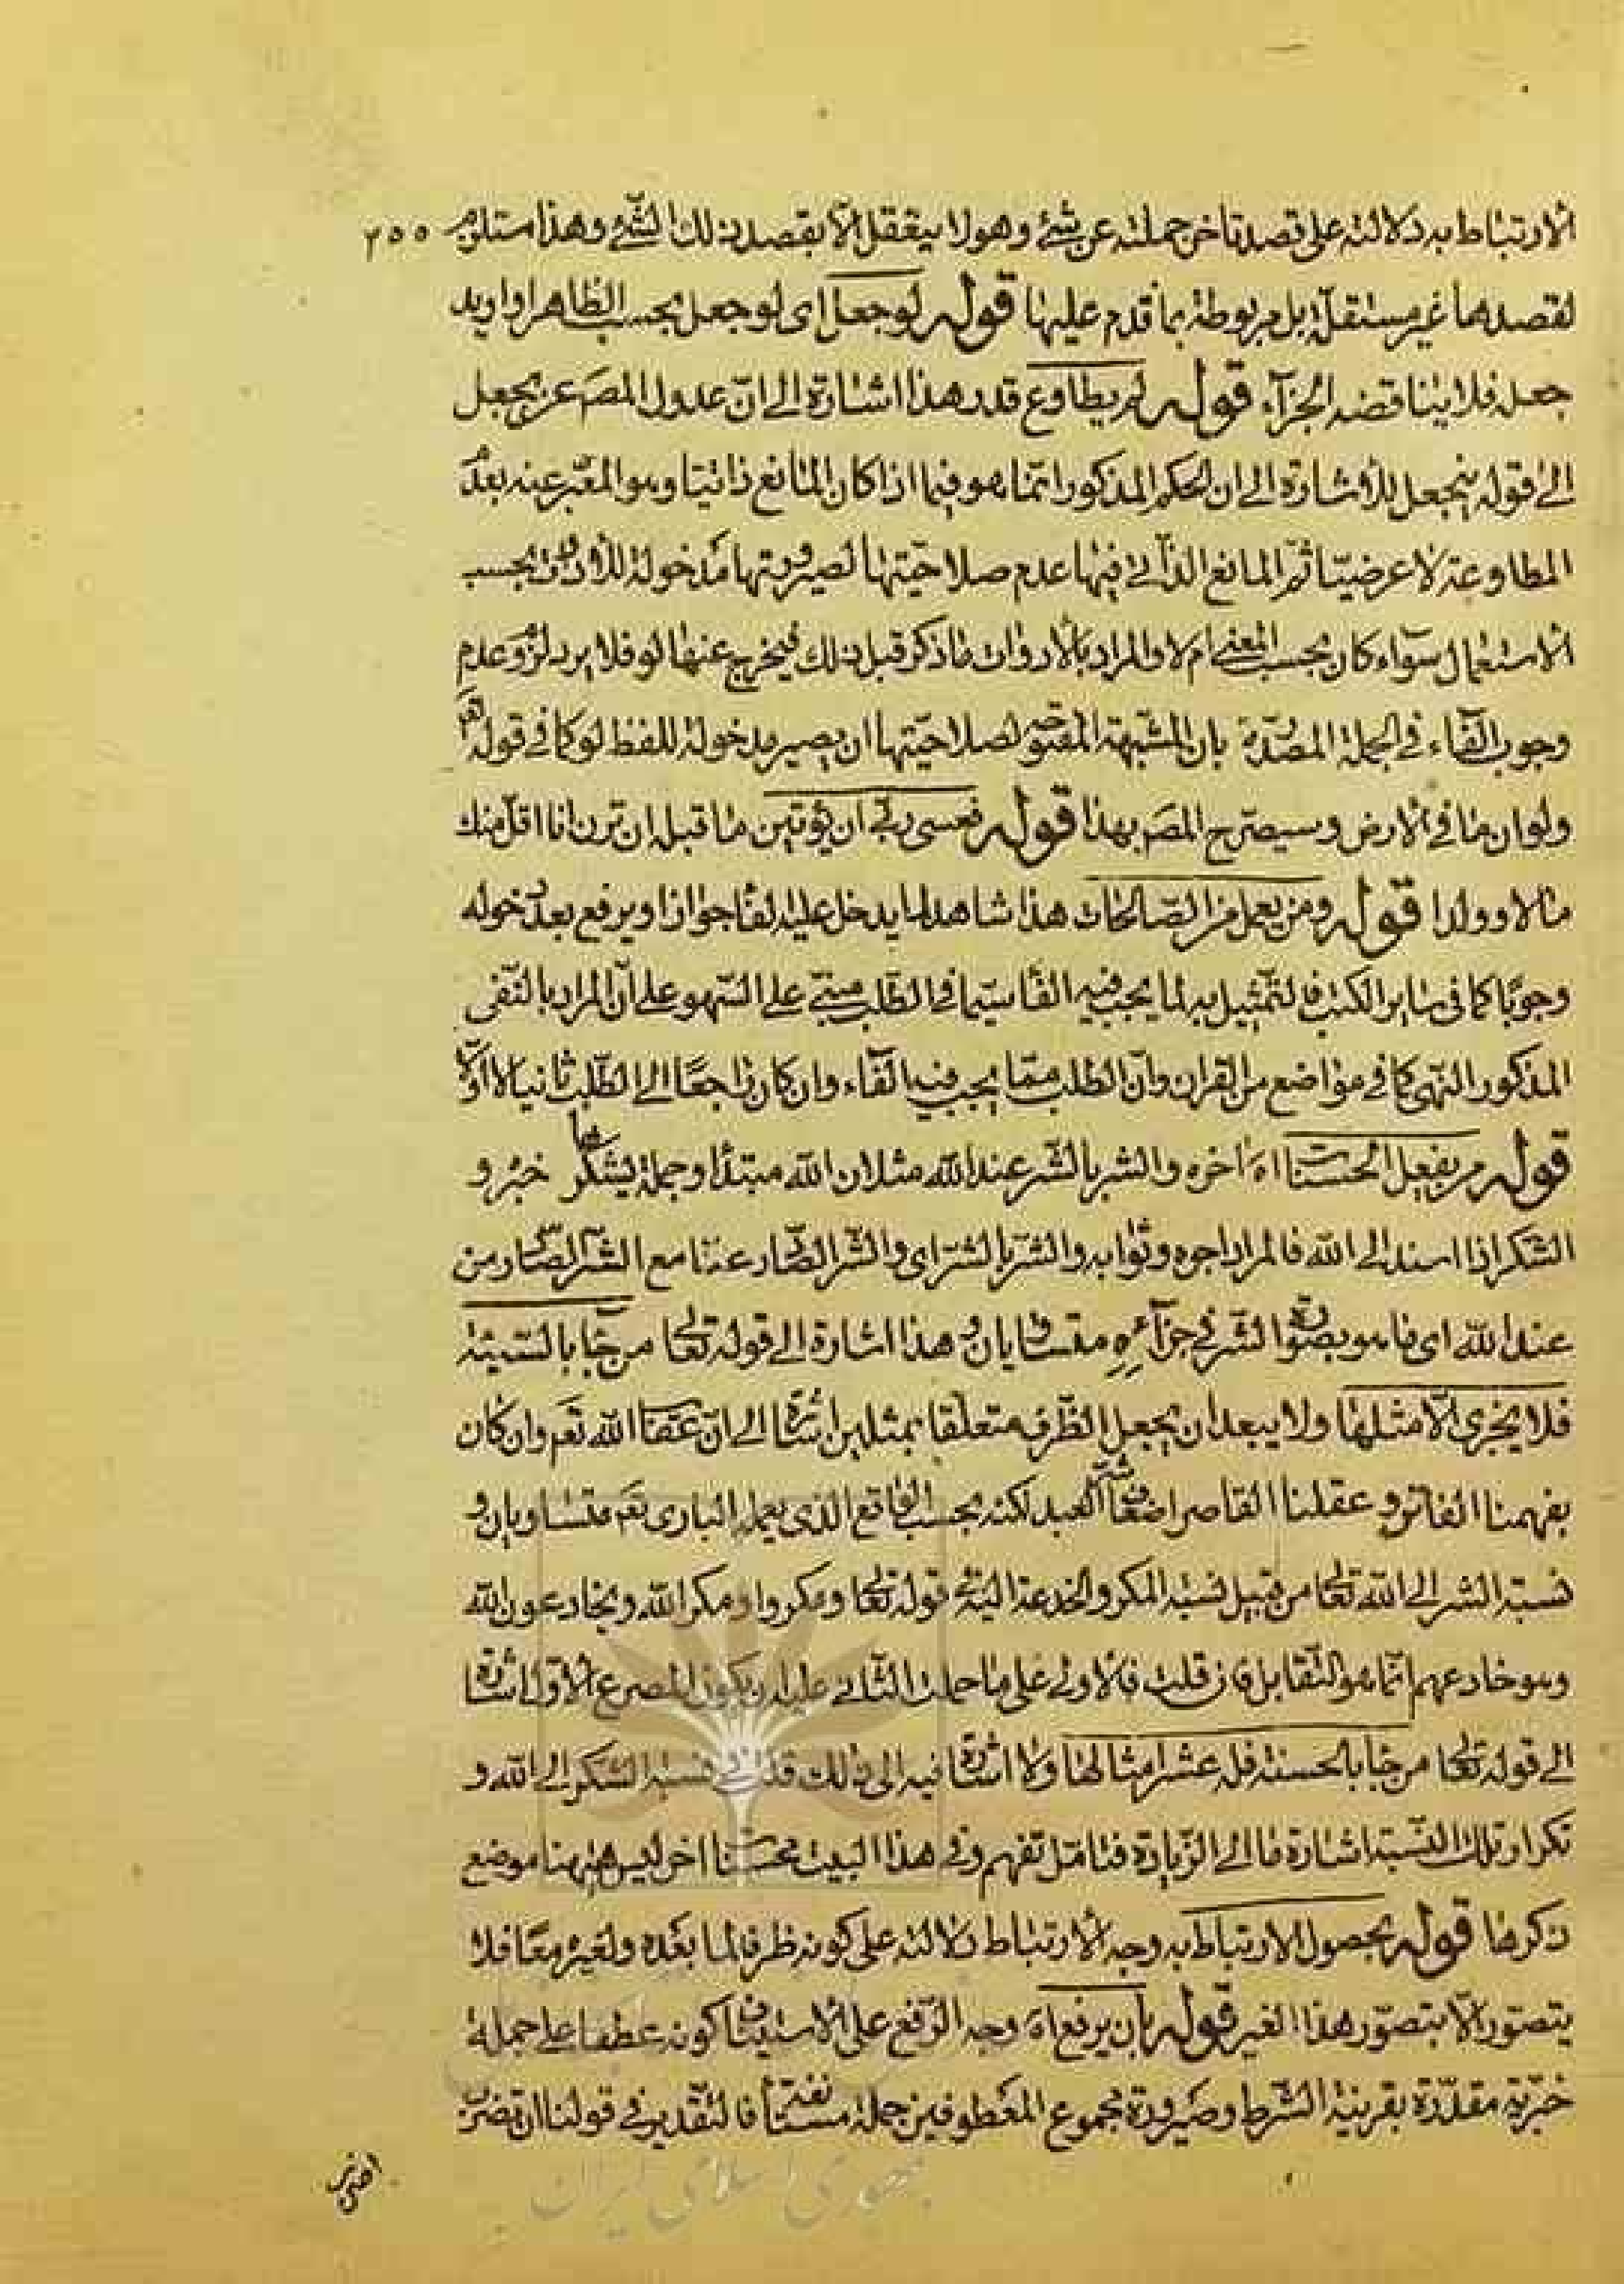 الارتباط به دلالته على قصد تاخر جملته عن شئ وهو لا يتعقل الا بقصد ذلك الشئ وهذا مستلزم ٢٥٥
لقصدهما غير مستقلة بل مربوطة بما قدم عليها قوله لو جعل اى لو جعل بحسب الظاهر او اريد
جعله فلا يناقضه الجزآء قوله لم يطاوع قدر هذا اشارة الى ان عدول المصَ عن يجعل
الى قوله ينجعل للاشارة الى ان الحكم المذكور انما هو فيما اذا كان المانع ذاتيا وهو المعبر عنه بعدم
المطاوعة لا عرضيا ثم المانع الذاتى فيها عدم صلاحيتها لصيرورتها مدخولة للادوات بحسب
الاستعمال سوآء كان بحسب المعنى ام لا والمراد بالادوات ما ذكر قبل ذلك فيخرج عنها لو فلا يرد لزوم عدم
وجوب الفآء فى الجملة المصدرة بان المشبهة المفتوحة لصلاحيتها ان يصير مدخولة للفظ لو كما فى قوله تعَ
ولو ان ما فى الارض وسيصرح المصَ بهذا قوله فعسى ربى ان يؤتين ما قبله ان ترن انا اقل منك
مالا وولدا قوله ومن يعمل من الصالحات هذا شاهد لما يدخل عليه الفا جوازا ويرفع بعد دخوله
وجوبا كما فى ساير الكتب فالتمثيل به لما يجب فيه الفا سيما فى الطلب مبنى على السهو على ان المراد بالنفى
المذكور النهى كما فى مواضع من القران وان الطلب مما يجب فيه الفآء وان كان راجعا الى الطلب ثانيا لا اولا
قوله من يفعل الحسنات اهَ اخره والشر بالشر عند الله مثلان الله مبتدأ وجملة يشكرها خبر و
الشكر اذا اسند الى الله فالمراد اجره وثوابه والشر بالشر اى والشر الصادر عنا مع الشر الصادر من
عند الله اى ما هو بصورة الشر فى جزآءه متساويان وهذا اشارة الى قوله تعالى من جا بالسيئة
فلا يجزى الا مثلها ولا يبعد ان يجعل الظرف متعلقا بمثلين اشارة الى ان عقاب الله تعَم وان كان
بفهمنا الفاتر وعقلنا القاصر اضعاف شر العبد لكنه بحسب الواقع الذى يعمله البارى تعَم متساويان و
نسبة الشر الى الله تعالى من قبيل نسبة المكر والخدعة اليه فى قوله تعالى ومكروا ومكر الله ويخادعون الله
وهو خادعهم انما هو التقابل فان قلت فالاولى على ما حملت الثانى عليه ان يكون المصرع الاول اشارة
الى قوله تعالى من جا بالحسنة فله عشر امثالها ولا اشارة فيه الى ذلك قلت فى نسبة الشكر الى الله و
تكرار تلك النسبة اشارة ما الى الزيادة فتامل تفهم وفى هذا البيت محسنات اخر ليس ههنا موضع
ذكرها قوله بحصول الارتباط به وجه الارتباط دلالته على كونه ظرفا لما بعده ولغيره معا فلا
يتصور الا بتصور هذا الغير قوله بان يرفع اهَ وجه الرفع على الاستيناف كونه عطفا على جملة
خبرية مقدرة بقرينة الشرط وصيرورة مجموع المعطوفين جملة مستأنفة فالتقدير فى قولنا ان تضرب